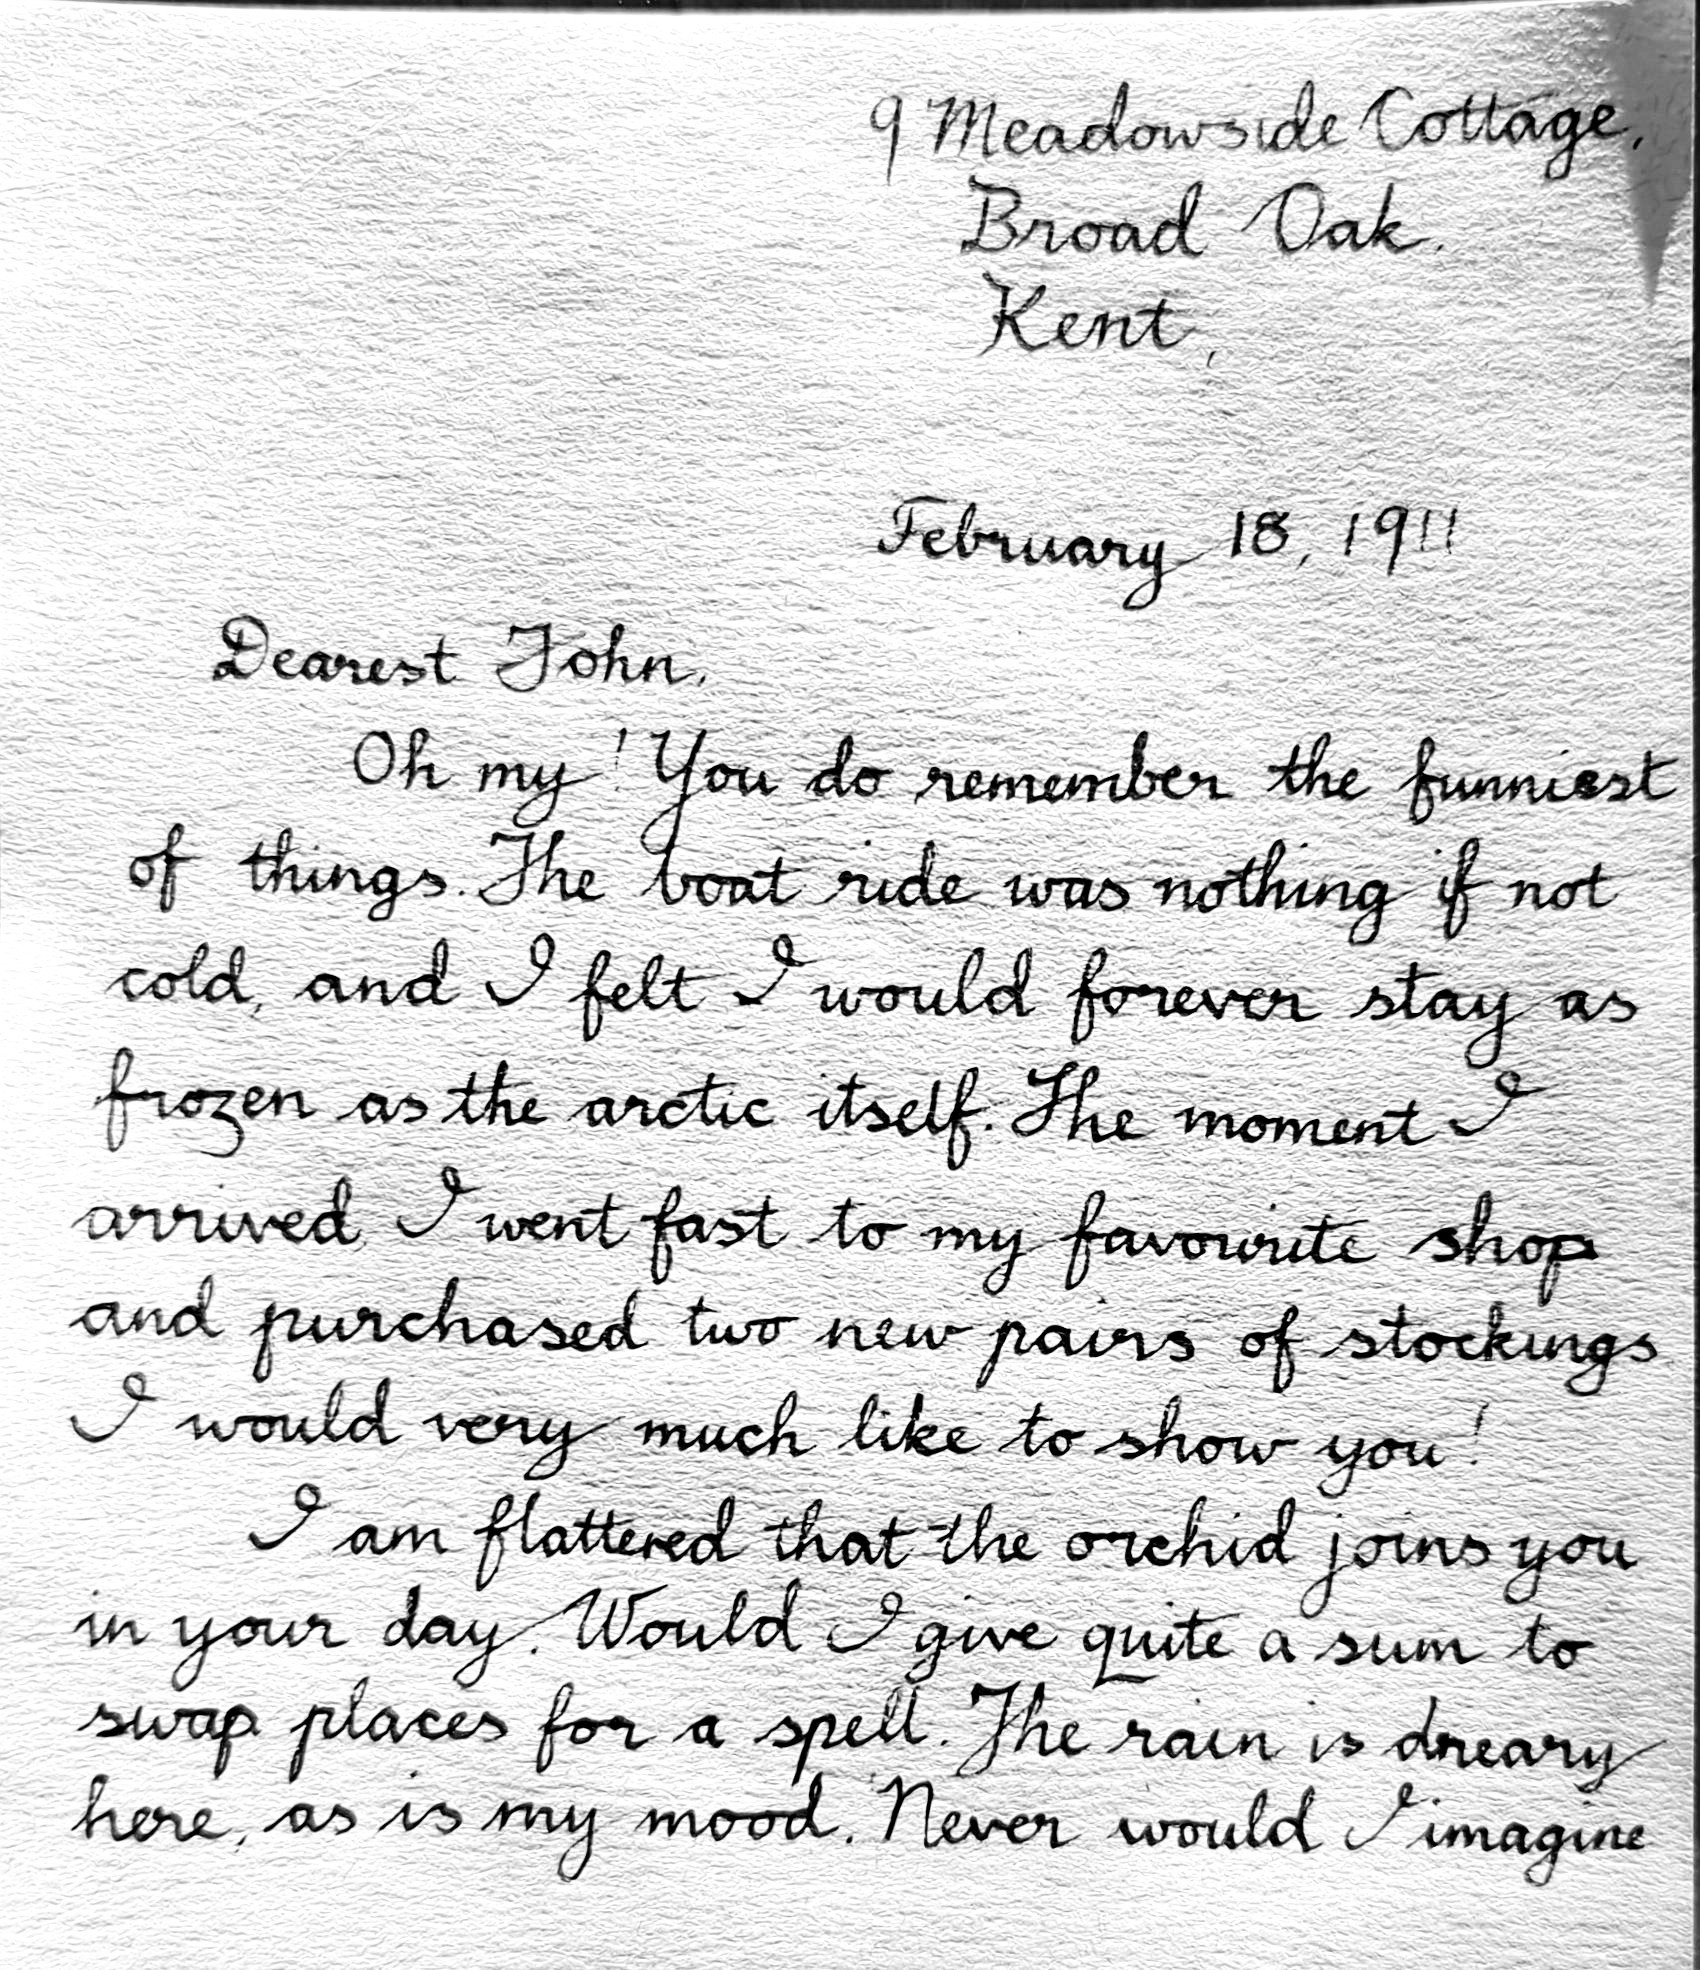 9 Meadowside Cottage,
Broad Oak,
Kent,
February 18, 1911
Dearest John,
Oh my! You do remember the funniest
of things. The boat ride was nothing if not
cold, and I felt I would forever stay as
frozen as the arctic itself. The moment I
arrived, I went fast to my favourite shop
and purchased two new pairs of stockings
I would very much like to show you!
I am flattered that the orchid joins you
in your day. Would I give quite a sum to
swap places for a spell. The rain is dreary
here, as is my mood. Never would I imagine